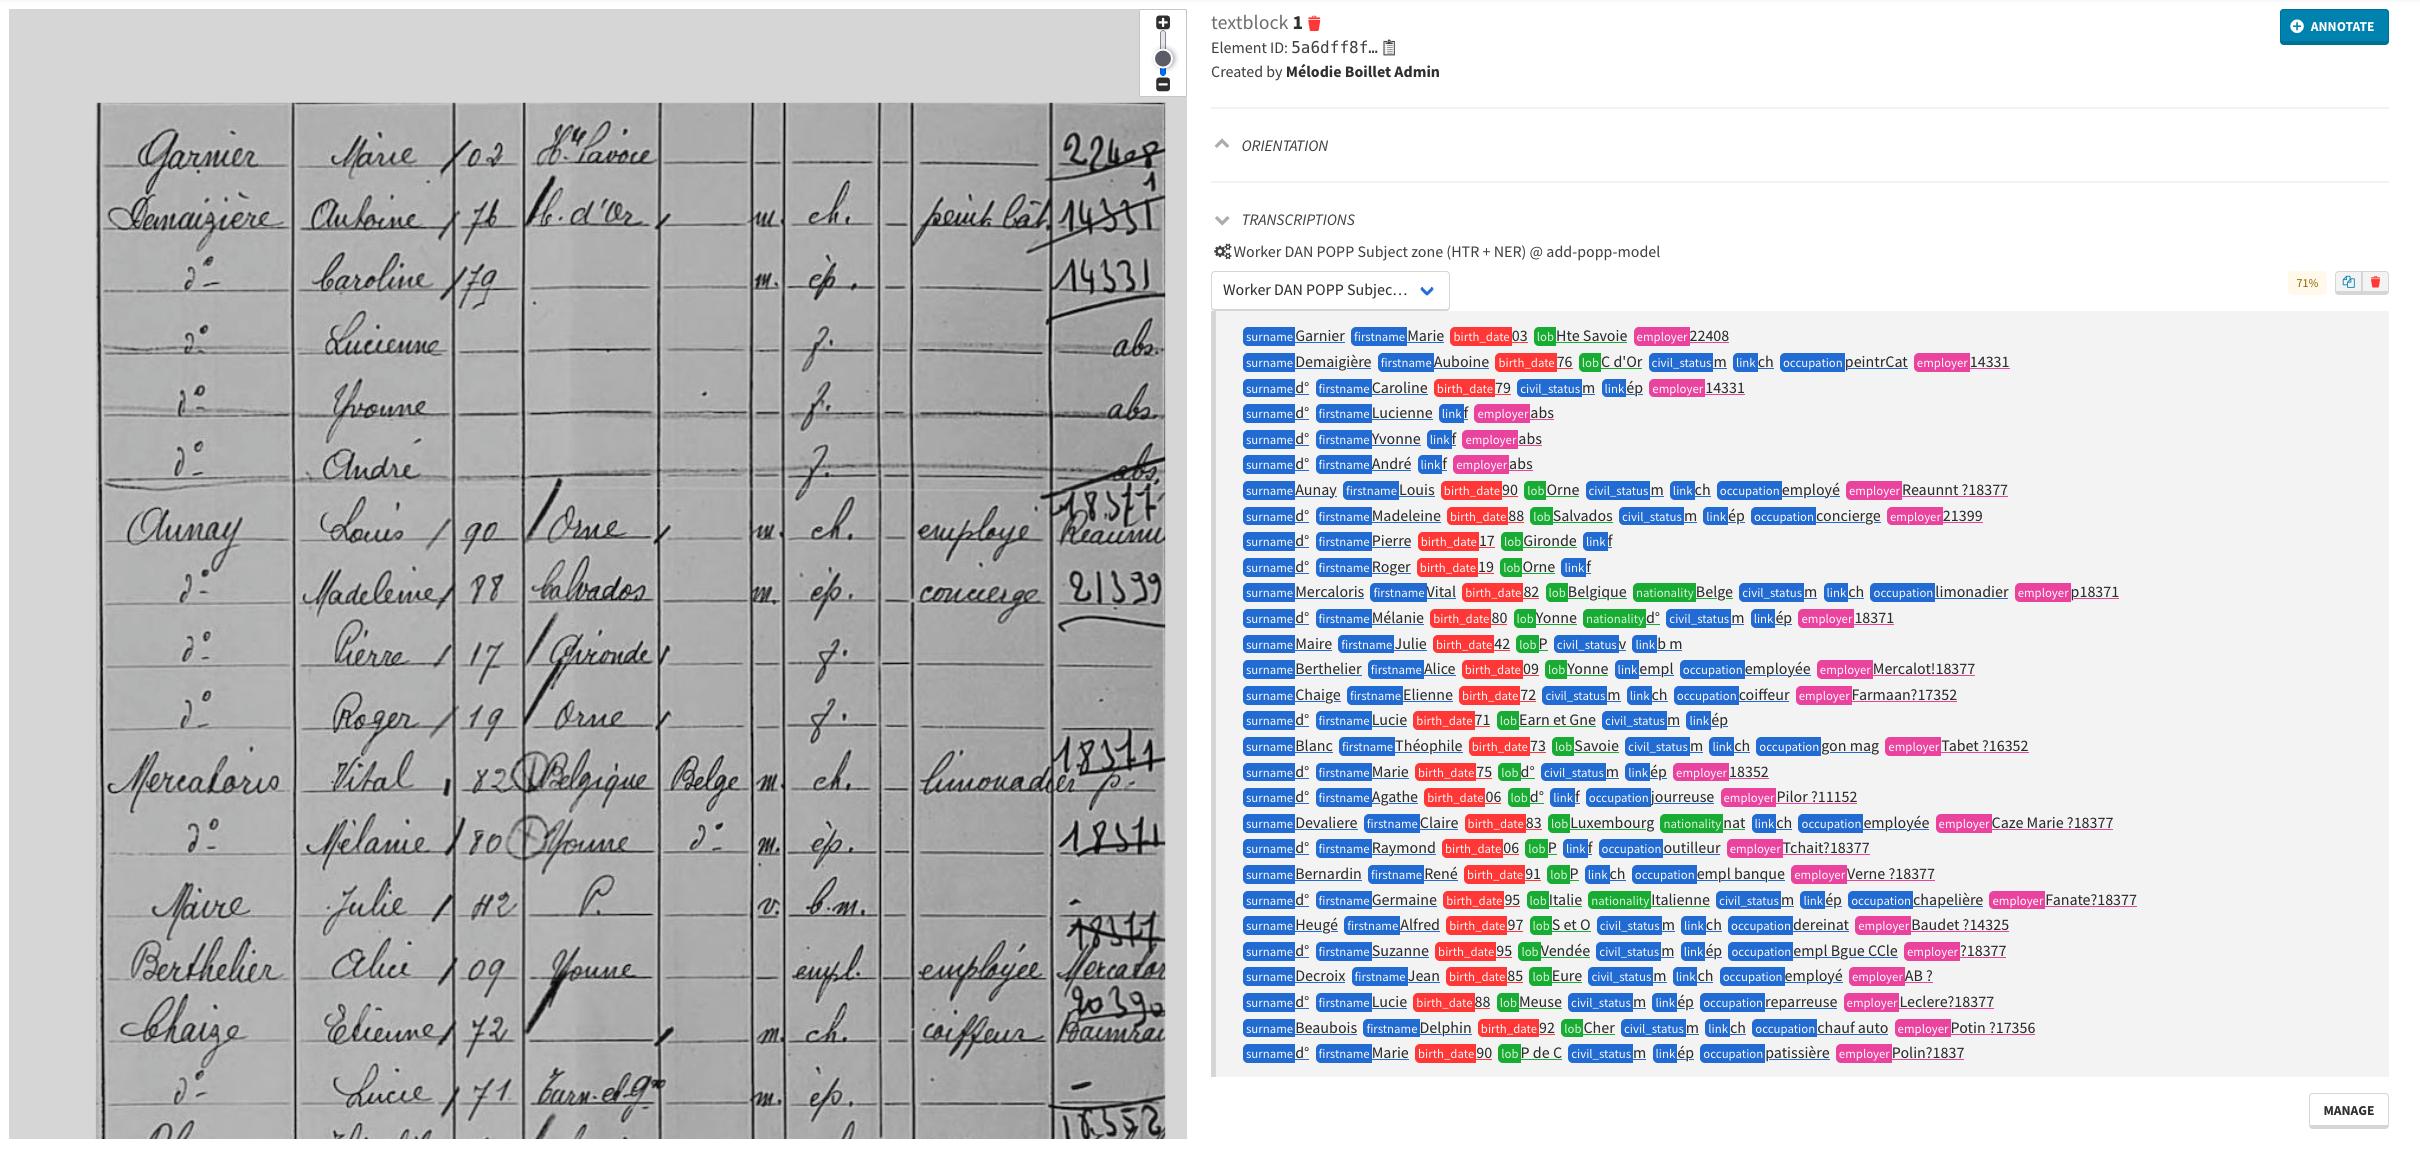 Garnier Marie 02 Hte Savoie 22408
1
Demaizière Antoine 76 C. d'Or m. ch. peint. bât. 14331
d° Caroline 79 m. ép. 14331
d° Lucienne f. abs.
d° Yvonne f. abs.
d° André f. abs.
18377
Aunay Louis 90 Orne m. ch. employé Réaumu
d° Madeleine 88 Calvados m. ép. concierge 21399
d° Pierre 17 Gironde f.
d° Roger 19 Orne f.
18377
Mercaloris Vital 82 Belgique Belge m. ch. limonadier p.
d° Mélanie 80 Yonne d° m. ép. 18371
Maire Julie 42 P. v. b.m. -
18377
Berthelier Alice 09 Yonne empl. employée Mercalor
20390
Chaize Etienne 72 m. ch. coiffeur
d° Lucie 71 Tarn-et-Gne m. ép. -
18352
textblock 1
Element ID: 5a6dff8f…
Created by Mélodie Boillet Admin
ANNOTATE
ORIENTATION
TRANSCRIPTIONS
Worker DAN POPP Subject zone (HTR + NER) @ add-popp-model
Worker DAN POPP Subjec… 71%
surname Garnier firstname Marie birth_date 03 lob Hte Savoie employer 22408
surname Demaigière firstname Auboine birth_date 76 lob C d'Or civil_status m link ch occupation peintrCat employer 14331
surname d° firstname Caroline birth_date 79 civil_status m link ép employer 14331
surname d° firstname Lucienne link f employer abs
surname d° firstname Yvonne link f employer abs
surname d° firstname André link f employer abs
surname Aunay firstname Louis birth_date 90 lob Orne civil_status m link ch occupation employé employer Reaunnt ?18377
surname d° firstname Madeleine birth_date 88 lob Salvados civil_status m link ép occupation concierge employer 21399
surname d° firstname Pierre birth_date 17 lob Gironde link f
surname d° firstname Roger birth_date 19 lob Orne link f
surname Mercaloris firstname Vital birth_date 82 lob Belgique nationality Belge civil_status m link ch occupation limonadier employer p18371
surname d° firstname Mélanie birth_date 80 lob Yonne nationality d° civil_status m link ép employer 18371
surname Maire firstname Julie birth_date 42 lob P civil_status v link b m
surname Berthelier firstname Alice birth_date 09 lob Yonne link empl occupation employée employer Mercalot!18377
surname Chaige firstname Elienne birth_date 72 civil_status m link ch occupation coiffeur employer Farmaan?17352
surname d° firstname Lucie birth_date 71 lob Earn et Gne civil_status m link ép
surname Blanc firstname Théophile birth_date 73 lob Savoie civil_status m link ch occupation gon mag employer Tabet ?16352
surname d° firstname Marie birth_date 75 lob d° civil_status m link ép employer 18352
surname d° firstname Agathe birth_date 06 lob d° link f occupation jourreuse employer Pilor ?11152
surname Devaliere firstname Claire birth_date 83 lob Luxembourg nationality nat link ch occupation employée employer Caze Marie ?18377
surname d° firstname Raymond birth_date 06 lob P link f occupation outilleur employer Tchait?18377
surname Bernardin firstname René birth_date 91 lob P link ch occupation empl banque employer Verne ?18377
surname d° firstname Germaine birth_date 95 lob Italie nationality Italienne civil_status m link ép occupation chapelière employer Fanate?18377
surname Heugé firstname Alfred birth_date 97 lob S et O civil_status m link ch occupation dereinat employer Baudet ?14325
surname d° firstname Suzanne birth_date 95 lob Vendée civil_status m link ép occupation empl Bgue CCle employer ?18377
surname Decroix firstname Jean birth_date 85 lob Eure civil_status m link ch occupation employé employer AB ?
surname d° firstname Lucie birth_date 88 lob Meuse civil_status m link ép occupation reparreuse employer Leclere?18377
surname Beaubois firstname Delphin birth_date 92 lob Cher civil_status m link ch occupation chauf auto employer Potin ?17356
surname d° firstname Marie birth_date 90 lob P de C civil_status m link ép occupation patissière employer Polin?1837
MANAGE